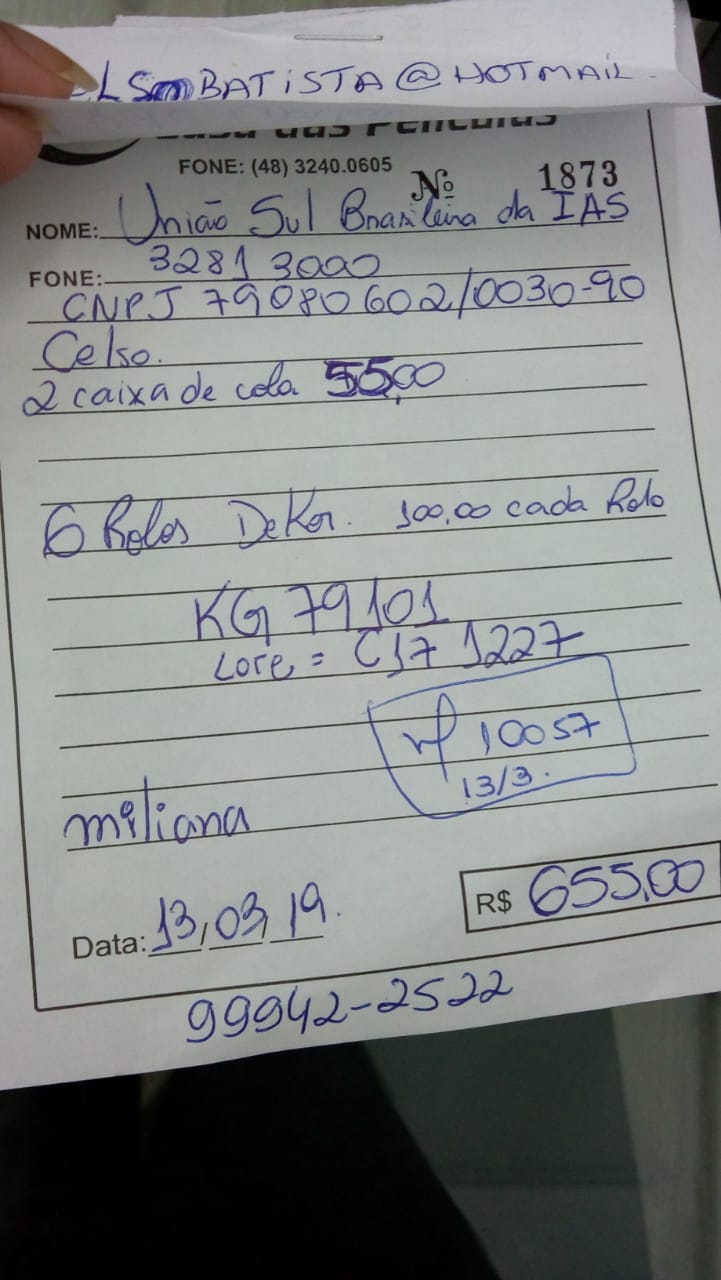 ELSON BATISTA @ HOTMAIL.
FONE: (48) 3240.0605
Nº 1873
NOME: União Sul Brasileira da IAS
FONE: 3281 3000
CNPJ 79080602/0030-90
Celso.
2 caixa de cola 55,00
6 Rolos DeKor. 100,00 cada Rolo
KG 79101
C17 1227
nf 10057
13/3.
miliana
Data: 13/03/19.
R$ 655,00
99942-2522